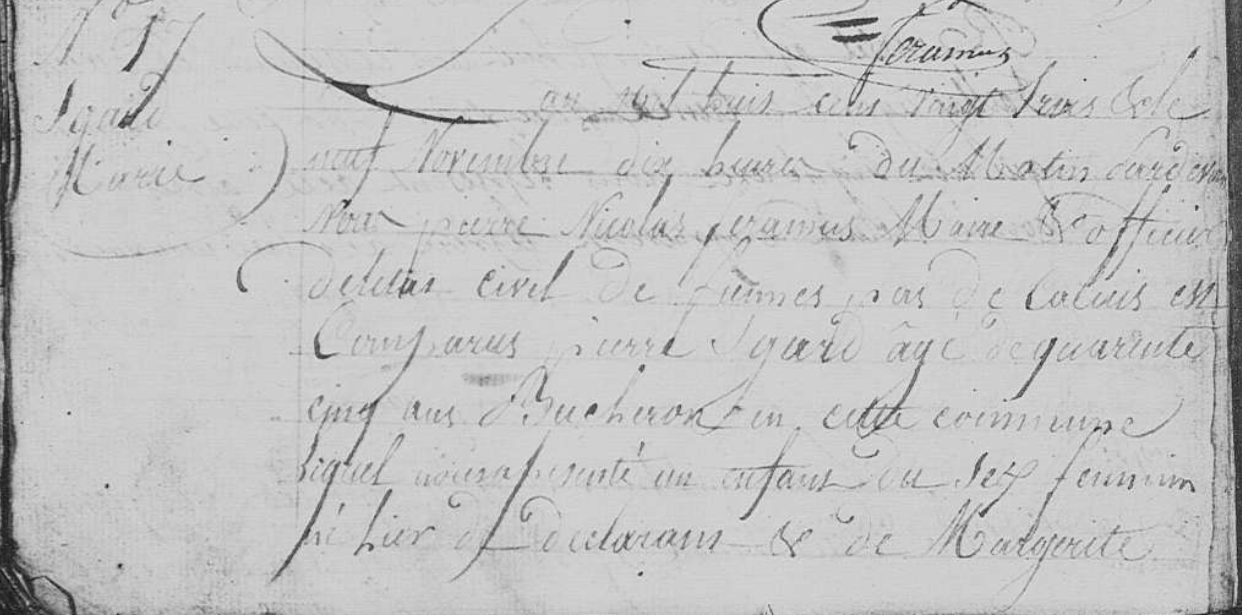 N° 57
Igard
Marie
feramus
an mil huis cens vaigt trois & le
neuf Novembre dix heures du Matin pardevan
Nous pierre Nicolas feramus Maire & officier
deletas civil de fiennes pas de Calais est
Comparus pierre Igard âgé de quarente
cinq ans Bucheron en cette commune
lequel nous a presenté un enfant du sex feminin
né hier de declarant & de Margerite